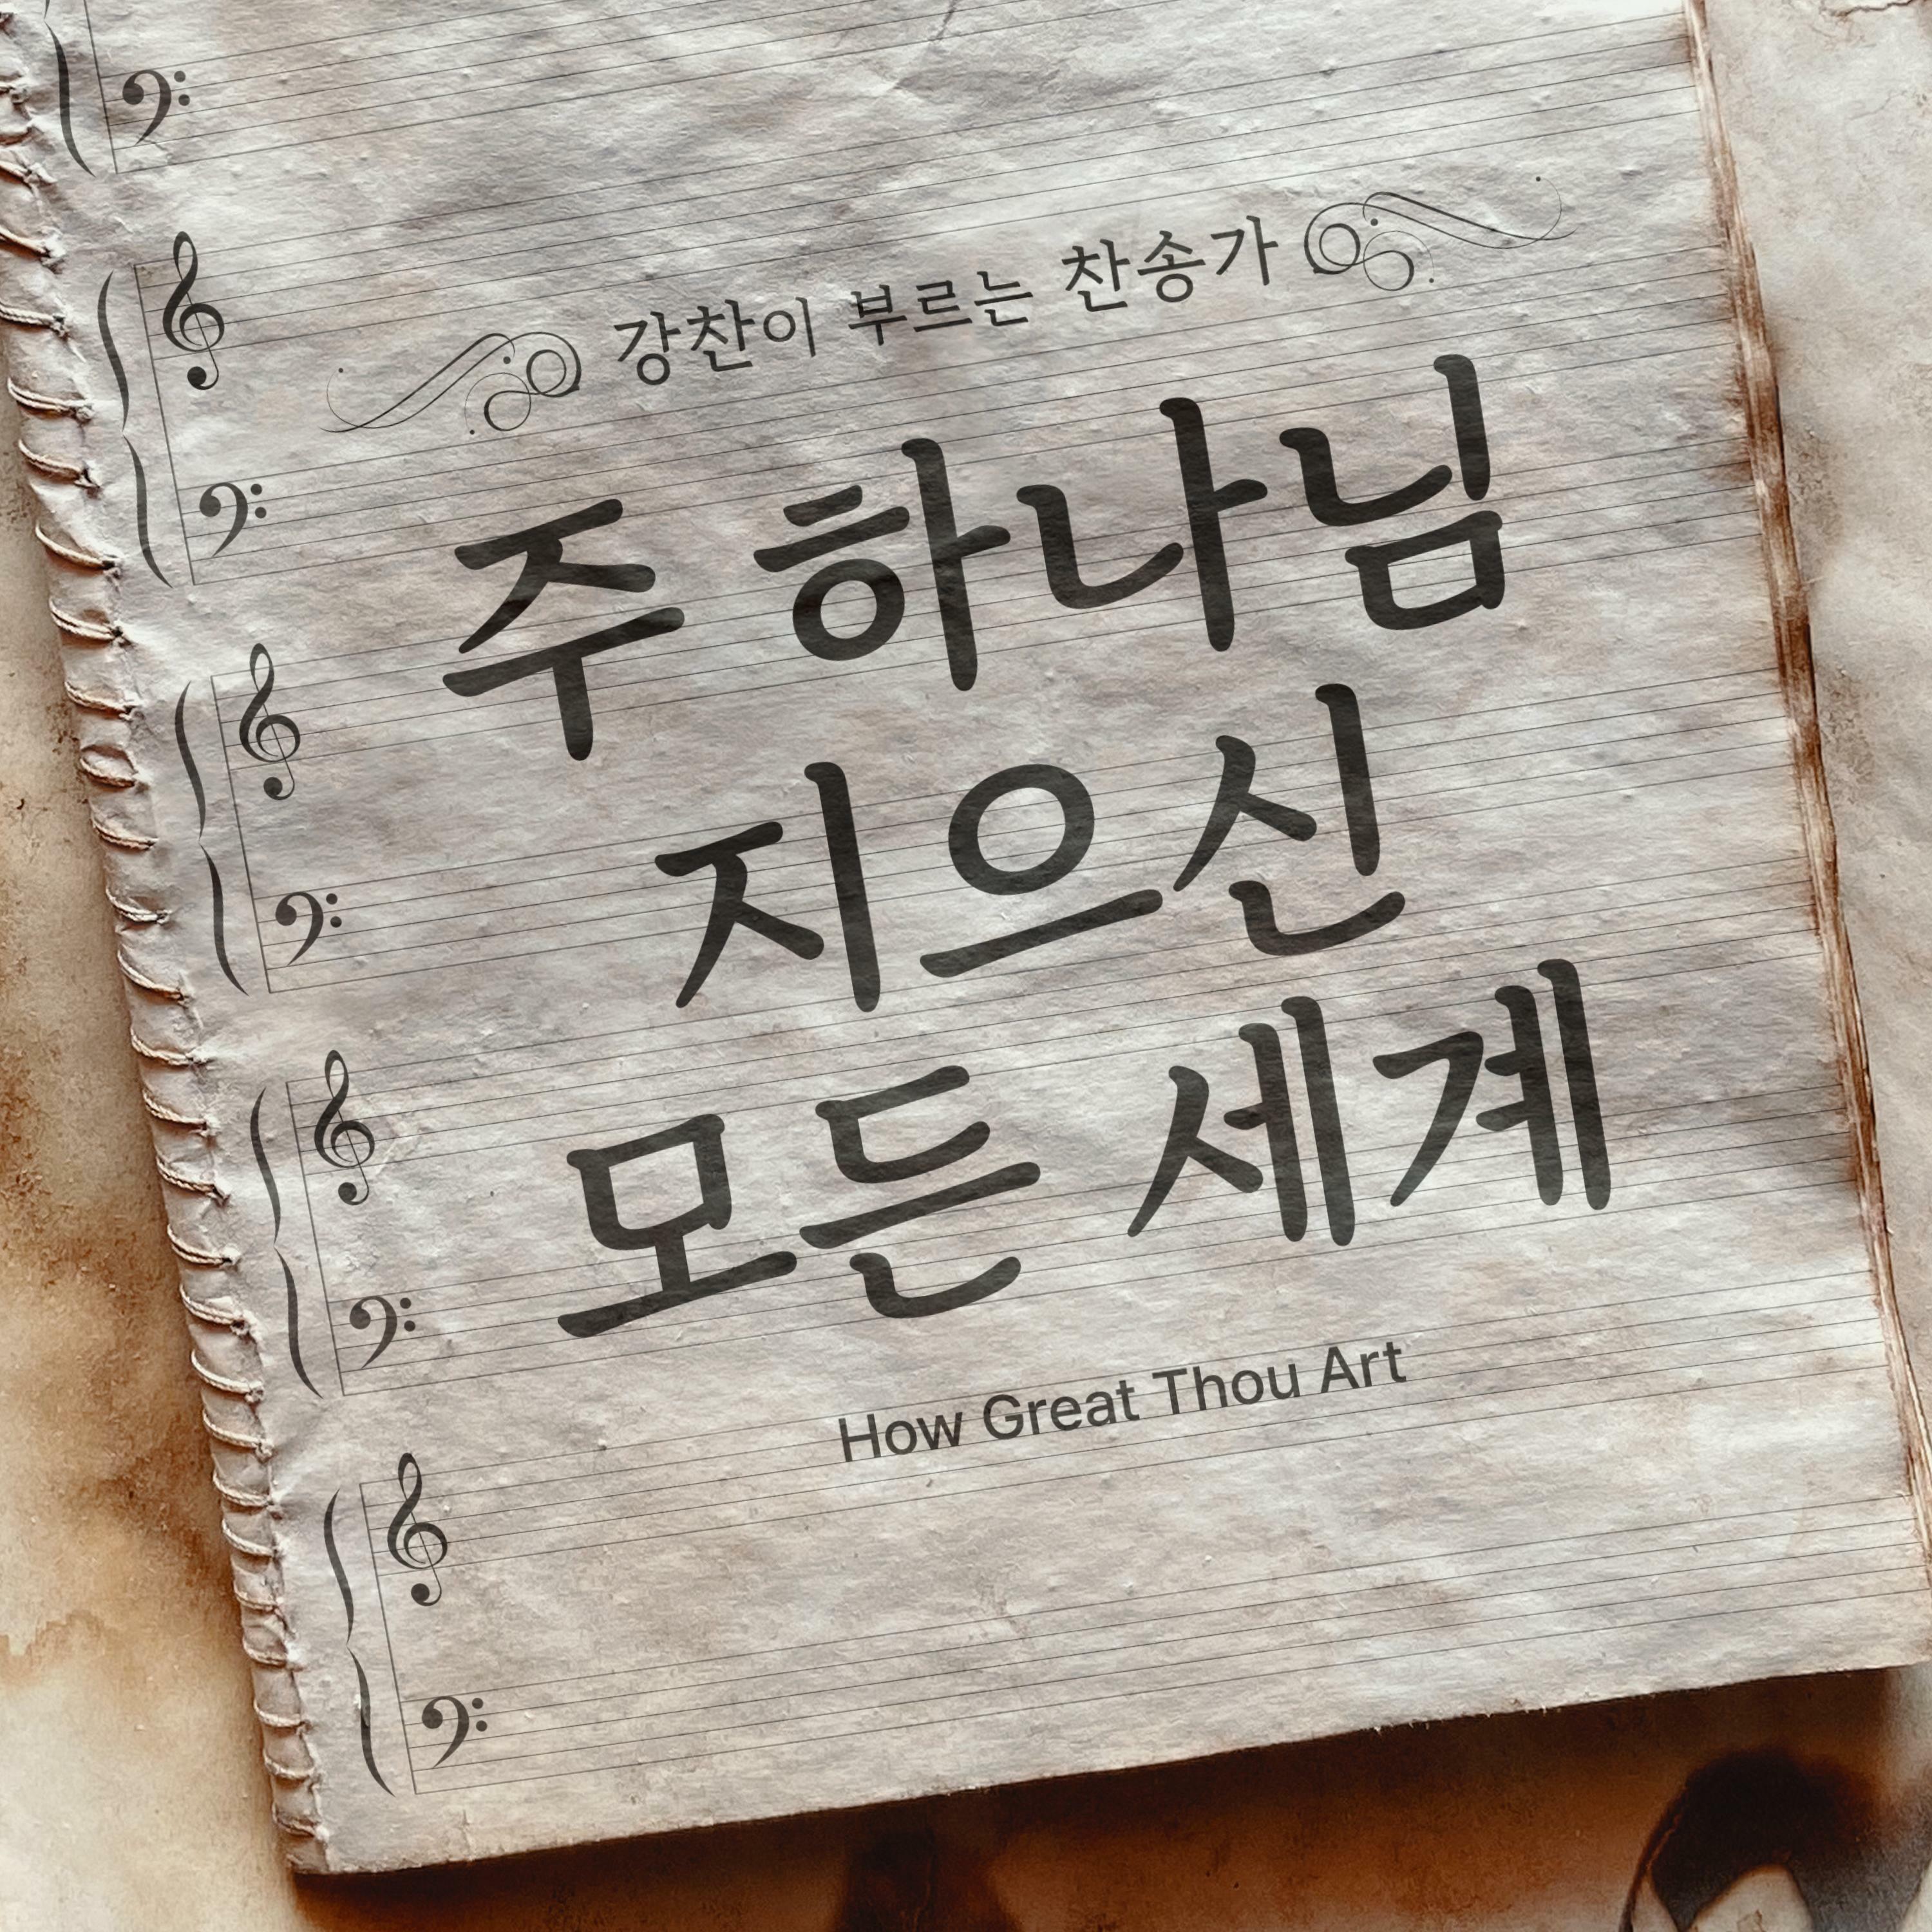 강찬이 부르는 찬송가
주 하나님
지으신
모든 세계
How Great Thou Art